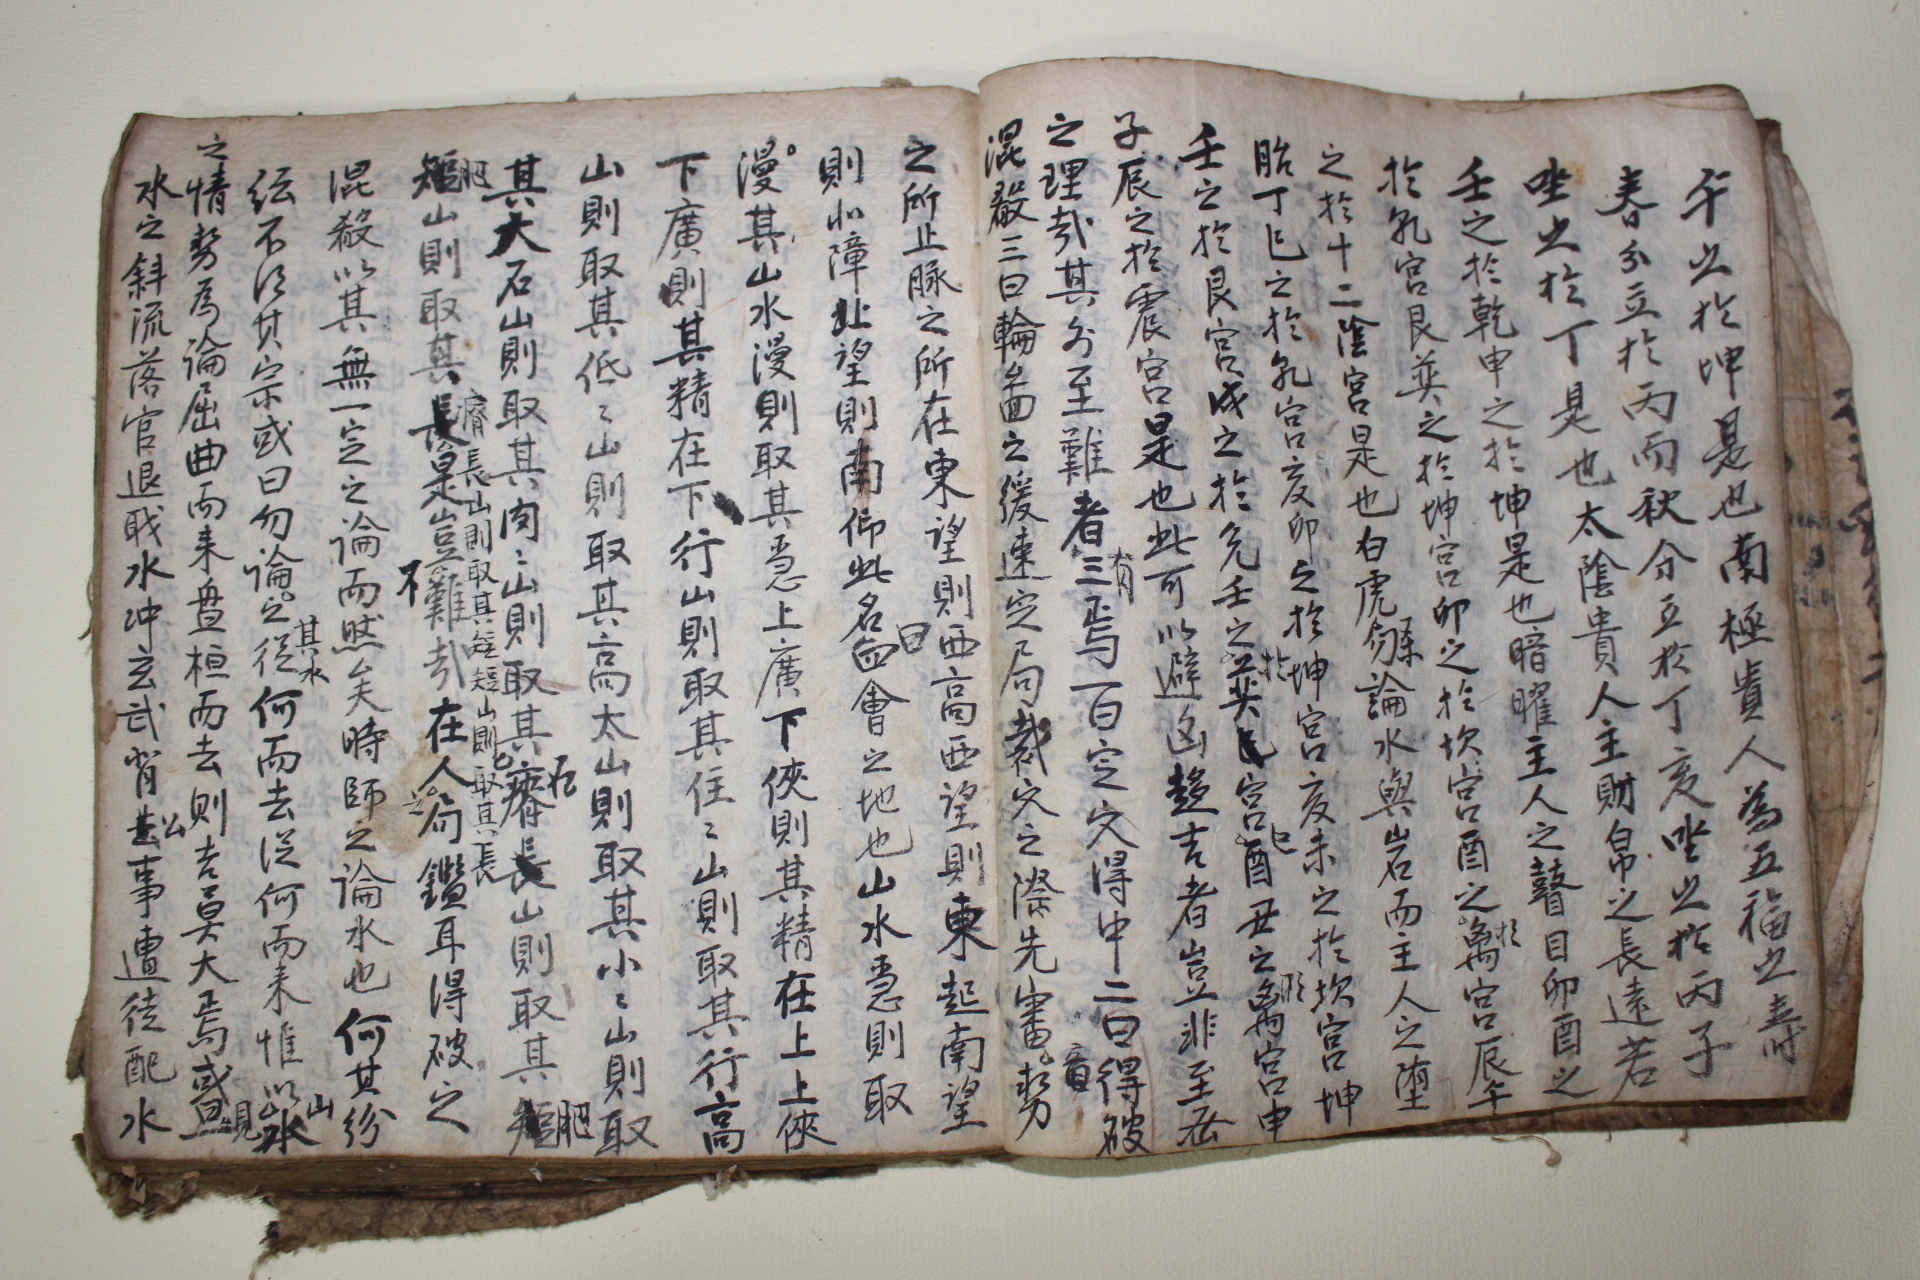 午之於坤是也南極貴人為五福之壽
春分立於丙而秋分立於丁亥坐之於丙子
坐之於丁是也太陰貴人主財帛之長遠若
壬之於乾申之於坤是也暗曜主人之瞽目卯酉之
於乳宮艮巽之於坤宮卯之於坎宮酉之於离宮辰午
之於十二陰宮是也白虎勿論水與岩而主人之墮
胎丁巳之於乳宮亥卯之於坤宮亥未之於坎宮坤
壬之於艮宮戌之於兌壬之於巽宮酉丑之於离宮申
子辰之於震宮是也此可以避凶趨吉者豈非至妙
之理哉其外至難者有三焉一曰定穴得中二曰得破
混殺三曰輪啚之緩速定局裁穴之際先審氣勢
之所止脉之所在東望則西高西望則東起南望
則北障北望則南仰此名曰四會之地也山水急則取
漫其山水漫則取其急上廣下俠則其精在上上俠
下廣則其精在下行山則取其住住山則取其行高
山則取其低低山則取其高太山則取其小小山則取
其大石山則取其肉肉山則取其石瘠山則取其肥
肥山則取其瘠長山則取其短短山則取其長
是豈不難哉在人局鑑耳得破之
混殺以其無一定之論而然矣時師之論水也何其紛
紜不得其宗或曰勿論之其水從何而去從何而來惟以山水
之情勢為論屈曲而來盤桓而去則吉莫大焉或見
水之斜流落官退職水冲玄武背公事遭徒配水